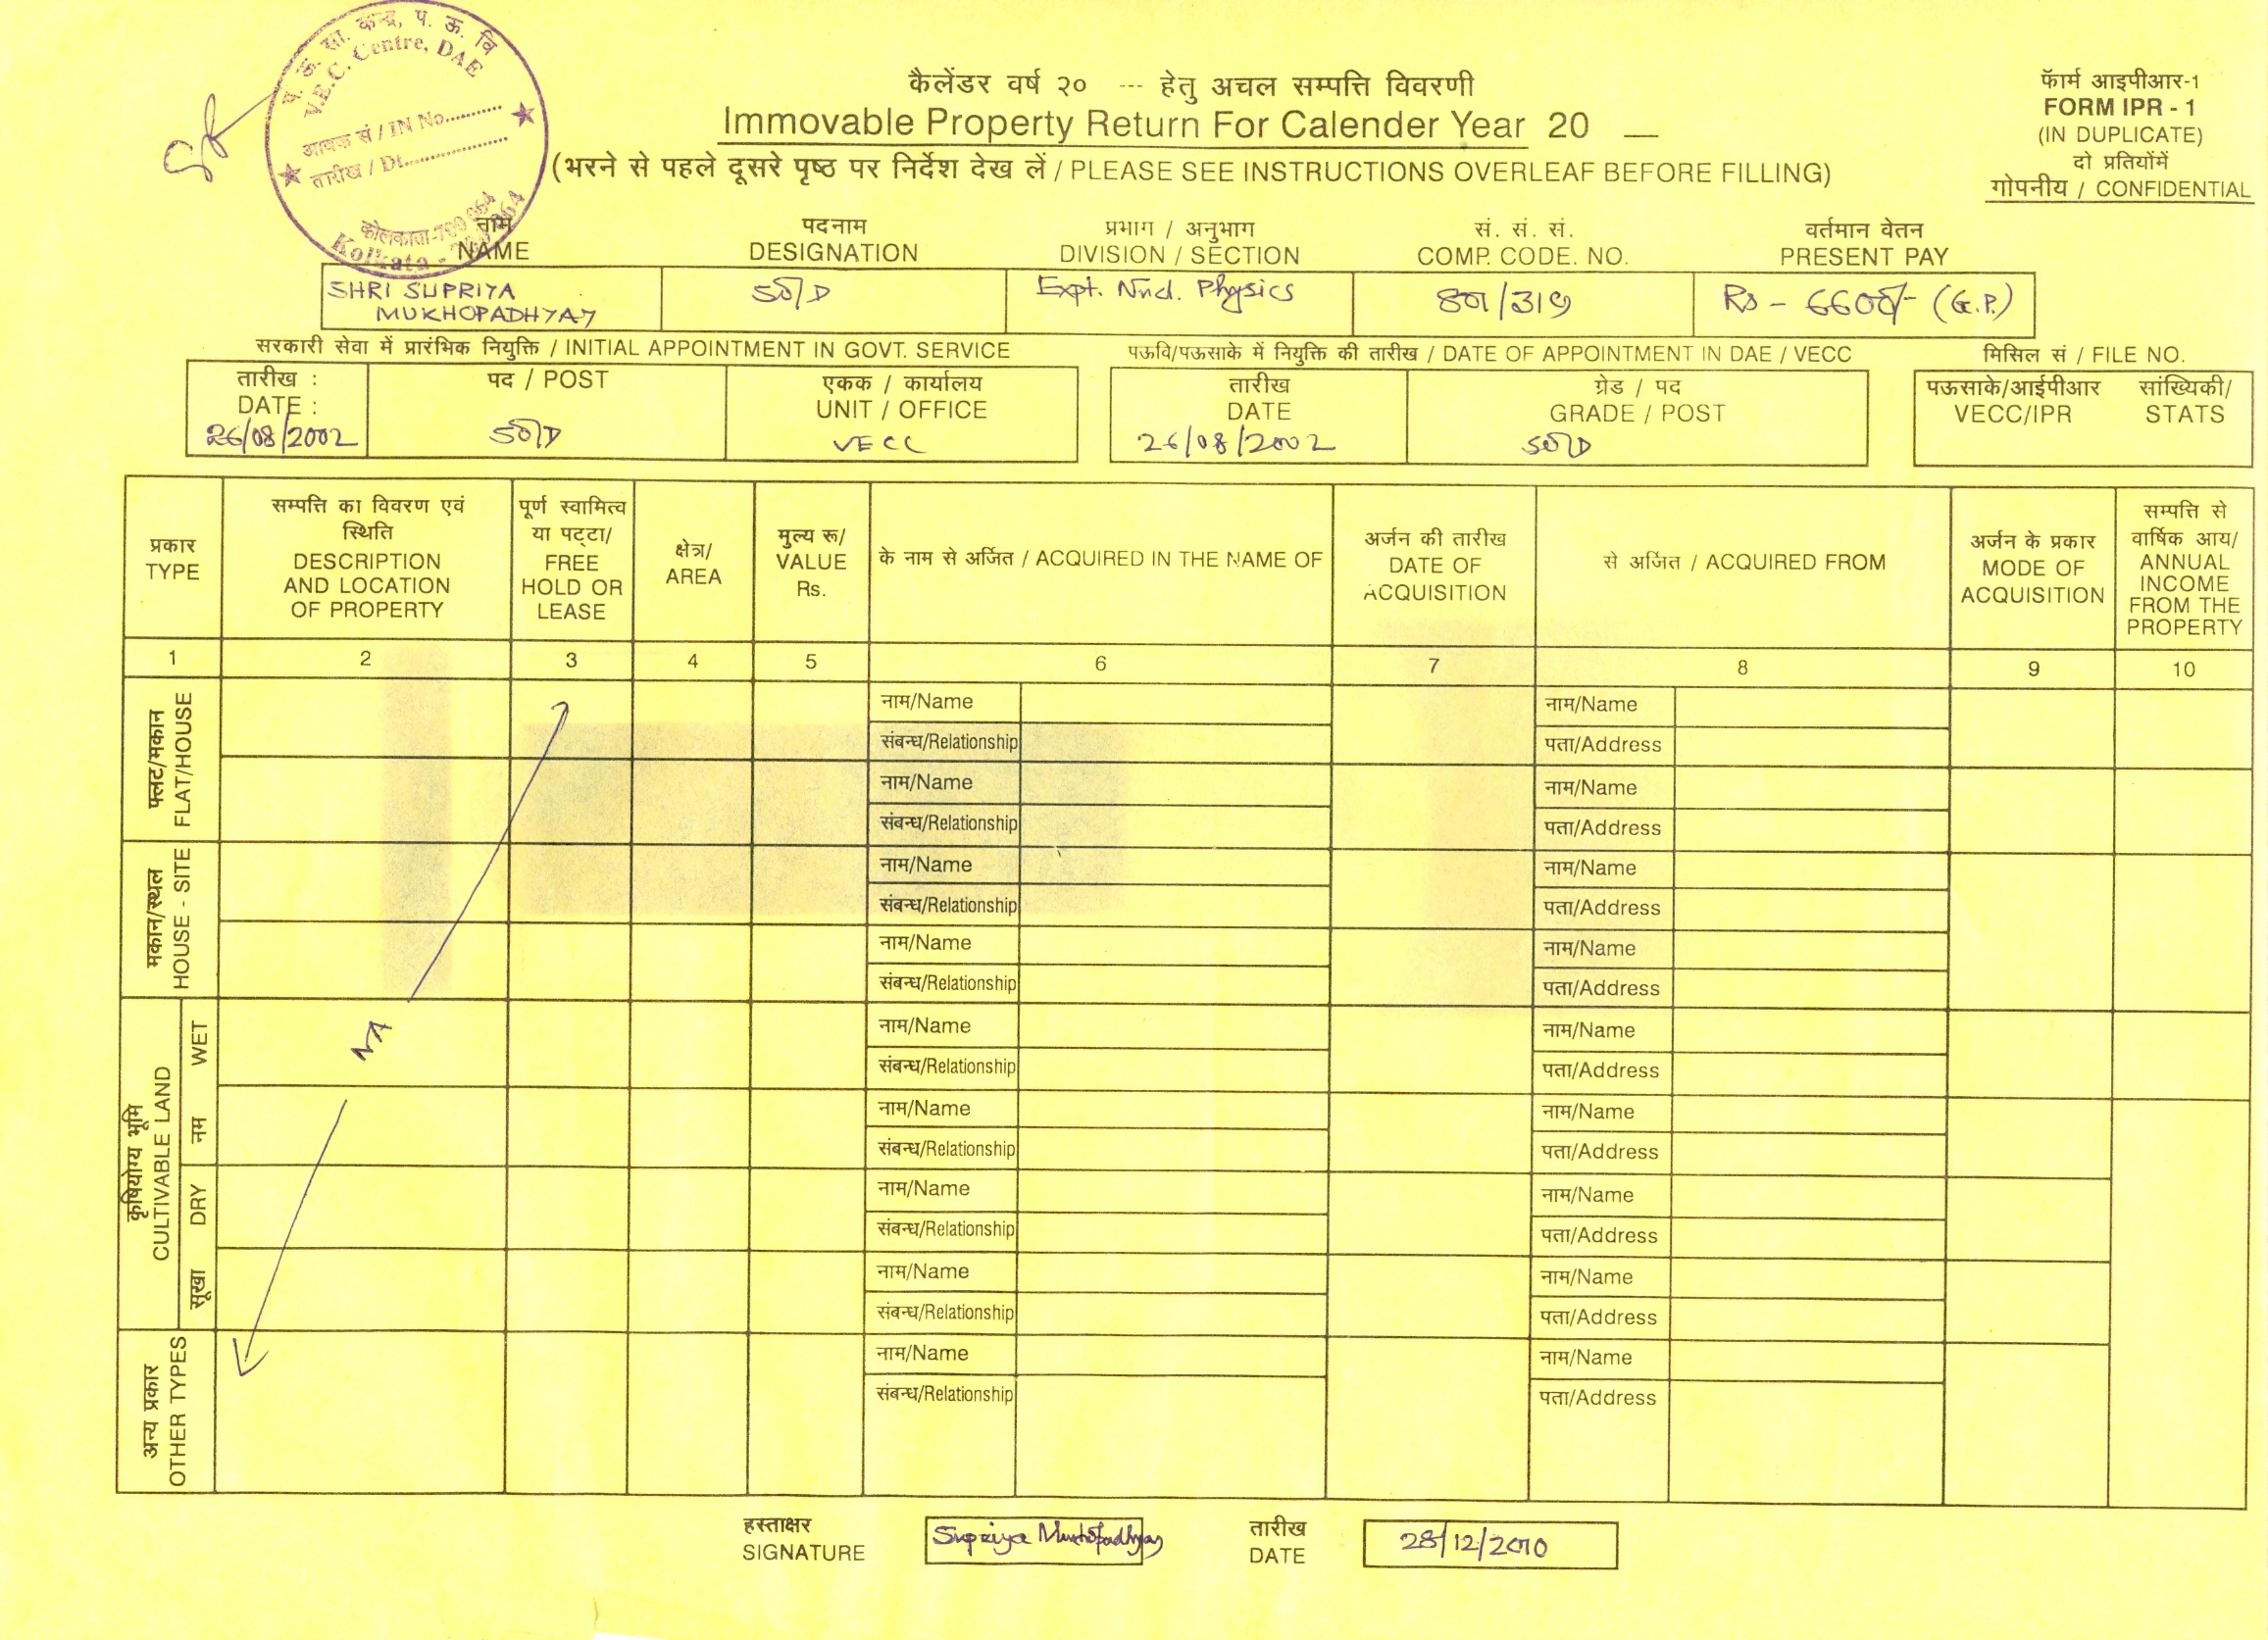 प. ऊ. सा. केन्द्र, प. ऊ. वि
V.E.C. Centre, DAE
आवक सं / IN No..........
तारीख / Dt....................
कोलकाता-700 064
Kolkata - 700 064
कैलेंडर वर्ष २० --- हेतु अचल सम्पत्ति विवरणी
Immovable Property Return For Calender Year 20 __
(भरने से पहले दूसरे पृष्ठ पर निर्देश देख लें / PLEASE SEE INSTRUCTIONS OVERLEAF BEFORE FILLING)
फॅार्म आइपीआर-1
FORM IPR - 1
(IN DUPLICATE)
दो प्रतियोंमें
गोपनीय / CONFIDENTIAL
नाम पदनाम प्रभाग / अनुभाग सं. सं. सं. वर्तमान वेतन
NAME DESIGNATION DIVISION / SECTION COMP. CODE. NO. PRESENT PAY
SHRI SUPRIYA SO/D Expt. Nucl. Physics 801/319 Rs - 6600/- (G.P.)
MUKHOPADHYAY
सरकारी सेवा में प्रारंभिक नियुक्ति / INITIAL APPOINTMENT IN GOVT. SERVICE पऊवि/पऊसाके में नियुक्ति की तारीख / DATE OF APPOINTMENT IN DAE / VECC मिसिल सं / FILE NO.
तारीख : पद / POST एकक / कार्यालय तारीख ग्रेड / पद पऊसाके/आईपीआर सांख्यिकी/
DATE : UNIT / OFFICE DATE GRADE / POST VECC/IPR STATS
26/08/2002 SO/D VECC 26/08/2002 SO/D
प्रकार
TYPE
सम्पत्ति का विवरण एवं
स्थिति
DESCRIPTION
AND LOCATION
OF PROPERTY
पूर्ण स्वामित्व
या पट्टा/
FREE
HOLD OR
LEASE
क्षेत्र/
AREA
मुल्य रू/
VALUE
Rs.
के नाम से अर्जित / ACQUIRED IN THE NAME OF
अर्जन की तारीख
DATE OF
ACQUISITION
से अर्जित / ACQUIRED FROM
अर्जन के प्रकार
MODE OF
ACQUISITION
सम्पत्ति से
वार्षिक आय/
ANNUAL
INCOME
FROM THE
PROPERTY
1 2 3 4 5 6 7 8 9 10
फ्लट/मकान
FLAT/HOUSE
नाम/Name नाम/Name
संबन्ध/Relationship पता/Address
नाम/Name नाम/Name
संबन्ध/Relationship पता/Address
मकान/स्थल
HOUSE - SITE
नाम/Name नाम/Name
संबन्ध/Relationship पता/Address
नाम/Name नाम/Name
संबन्ध/Relationship पता/Address
कृषियोग्य भूमि
CULTIVABLE LAND
नम WET
NA
नाम/Name नाम/Name
संबन्ध/Relationship पता/Address
नाम/Name नाम/Name
संबन्ध/Relationship पता/Address
सूखा DRY
नाम/Name नाम/Name
संबन्ध/Relationship पता/Address
नाम/Name नाम/Name
संबन्ध/Relationship पता/Address
अन्य प्रकार
OTHER TYPES
नाम/Name नाम/Name
संबन्ध/Relationship पता/Address
हस्ताक्षर तारीख
SIGNATURE Supriya Mukhopadhyay DATE 28/12/2010